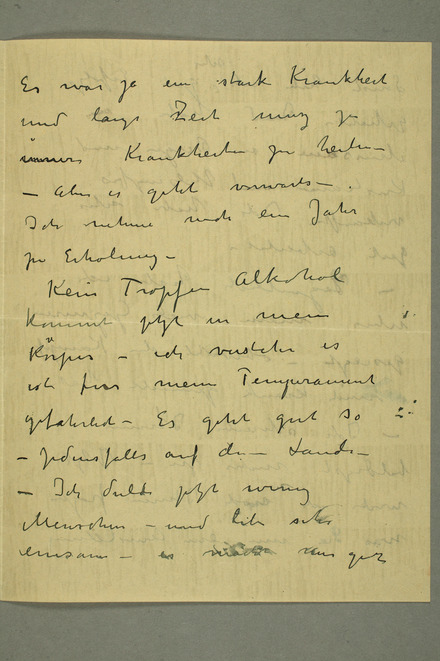 Es war ja ein stark Krankheit
und lange Zeit muss ja
innere Krankheiten zu heilen –
– Aber es geht vorwarts – .
Ich nehme noch ein Jahr
zu Erholung –
Kein Tropfen Alkohol
kommt jetzt in mein
Körper – ich verstehe es
ist fur mein Temperament
gefahrlich – Es geht gut so
– jedensfalls auf dem Lande –
– Ich dulde jetzt wenig
Menschen – und lebe sehr
einsam – es